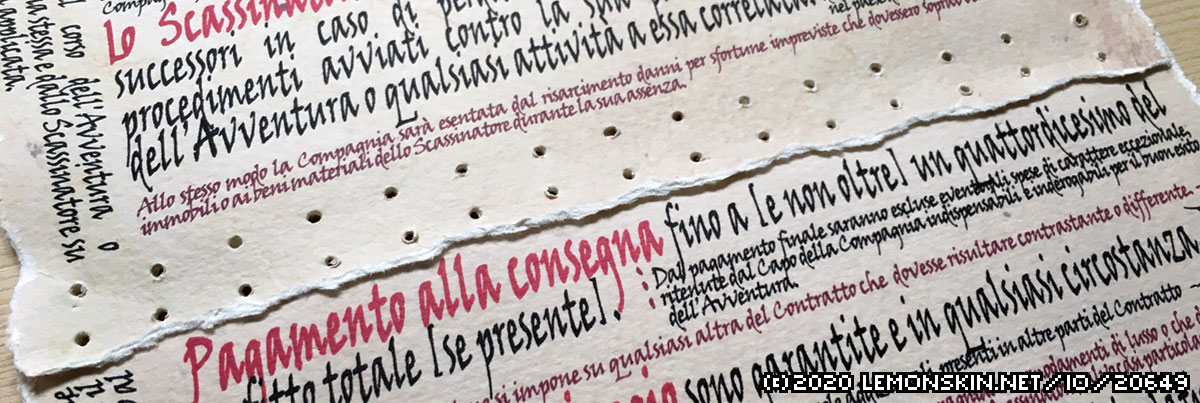 Compag
Lo Scassinato
successori in caso di per
procedimenti avviati contro la sua
dell'Avventura o qualsiasi attività a essa correlata
Allo stesso modo la Compagnia sarà esentata dal risarcimento danni per sfortune impreviste che dovessero sopra
immobili o ai beni materiali dello Scassinatore durante la sua assenza.
l corso dell'Avventura o
a stessa e dallo Scassinatore su
applicata.
Pagamento alla consegna fino a [e non oltre] un quattordicesimo del
fitto totale [se presente].
Dal pagamento finale saranno escluse eventuali spese di carattere eccezionale
ritenute dal Capo della Compagnia indispensabili e inderogabili per il buon esito
dell'Avventura.
si impone su qualsiasi altra del Contratto che dovesse risultare contrastante o differente.
sono garantite e in qualsiasi circostanza
di presenti in altre parti del Contratto
agamenti di lusso o che
(C)2020 LEMONSKIN.NET/IO/20649